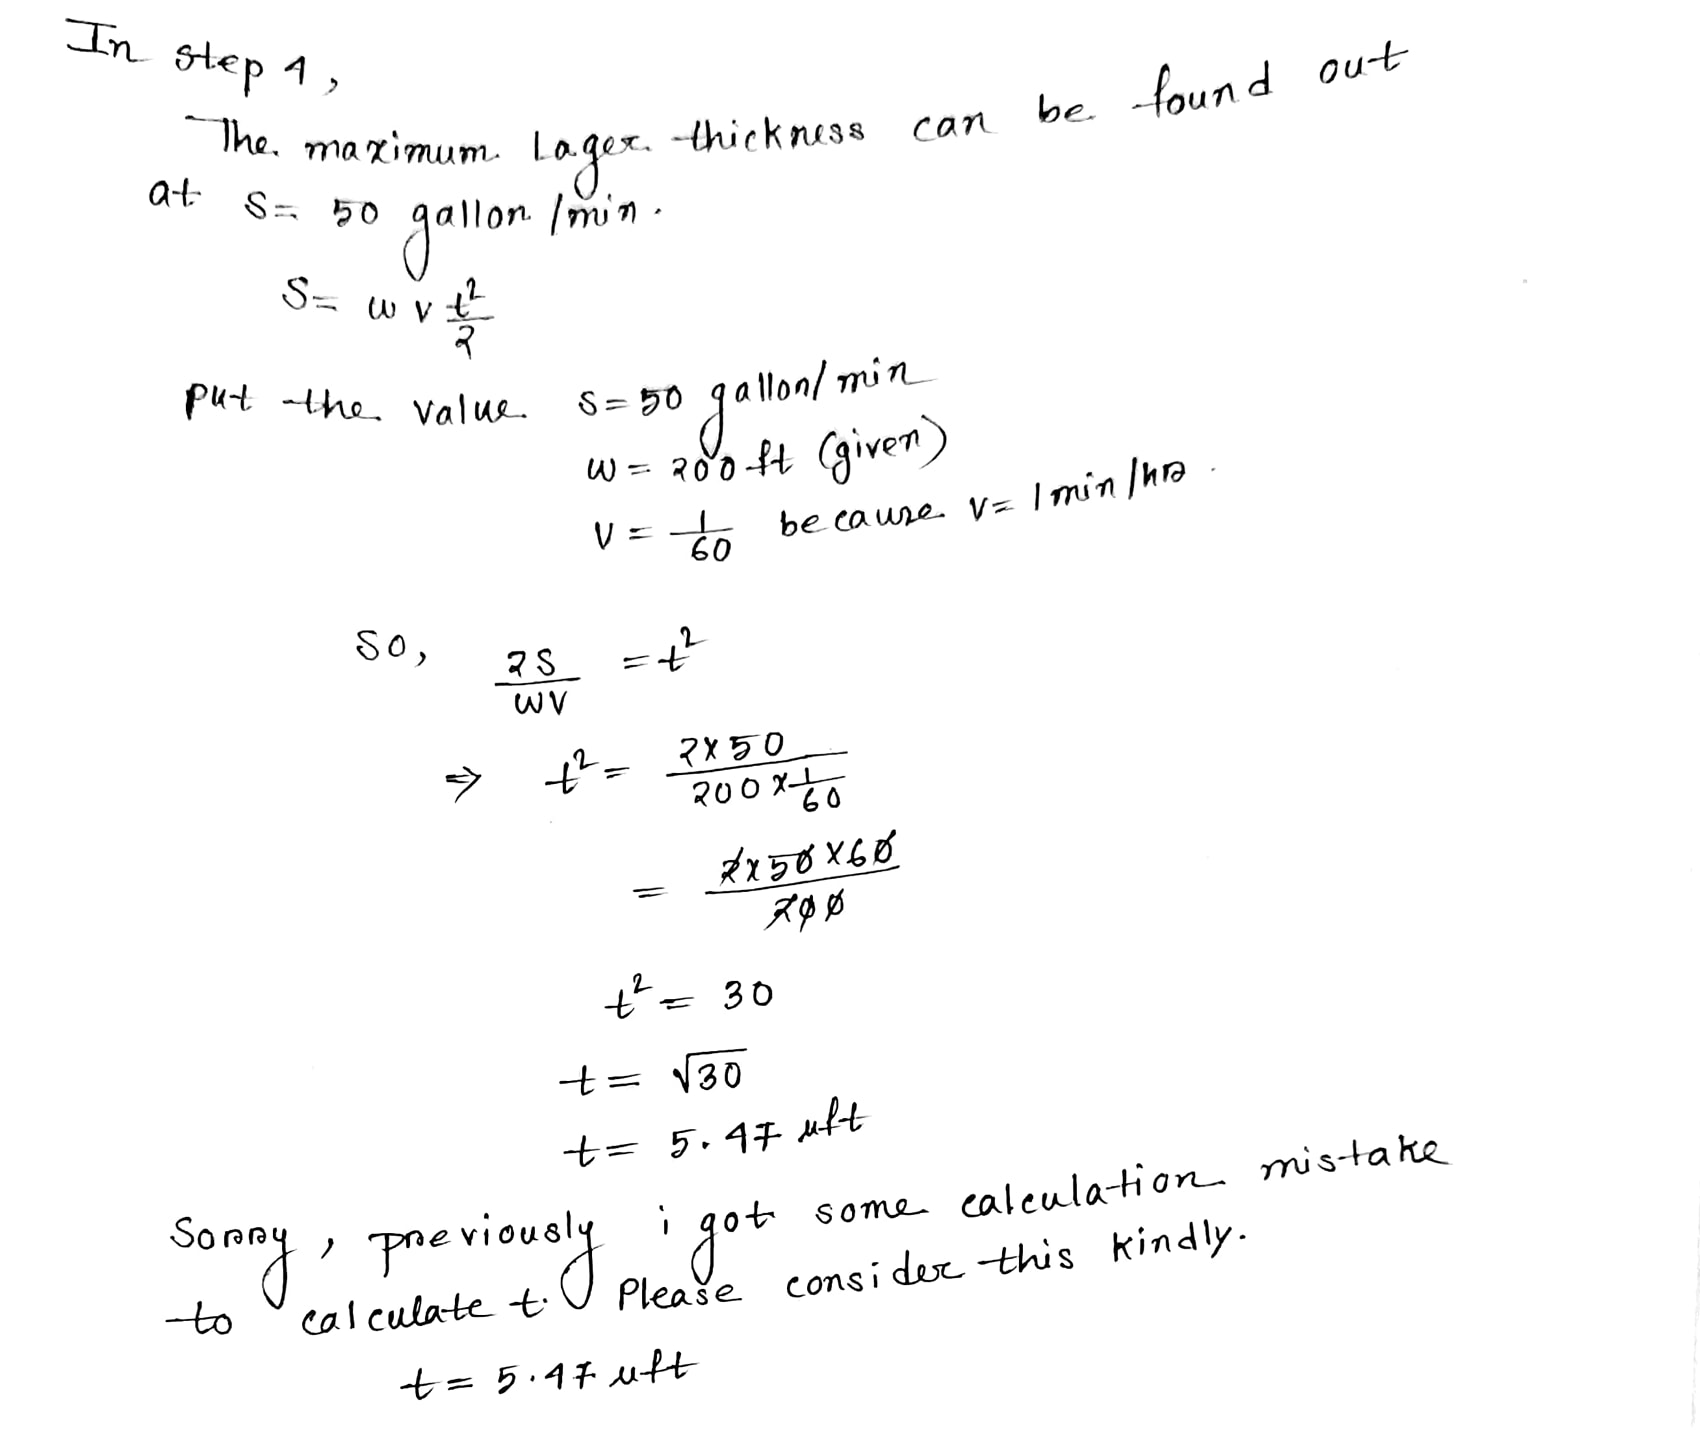 In step 4,
The maximum Lager thickness can be found out
at S = 50 gallon /min.
S = w v t²/2
put the value S = 50 gallon/min
w = 200 ft (given)
V = 1/60 because V = 1 min/hr.
So, 2S/WV = t²
⇒ t² = 2×50/200×1/60
= 2×50×60/200
t² = 30
t = √30
t = 5.47 μft
Sorry, previously i got some calculation mistake
to calculate t. Please consider this kindly.
t = 5.47 μft